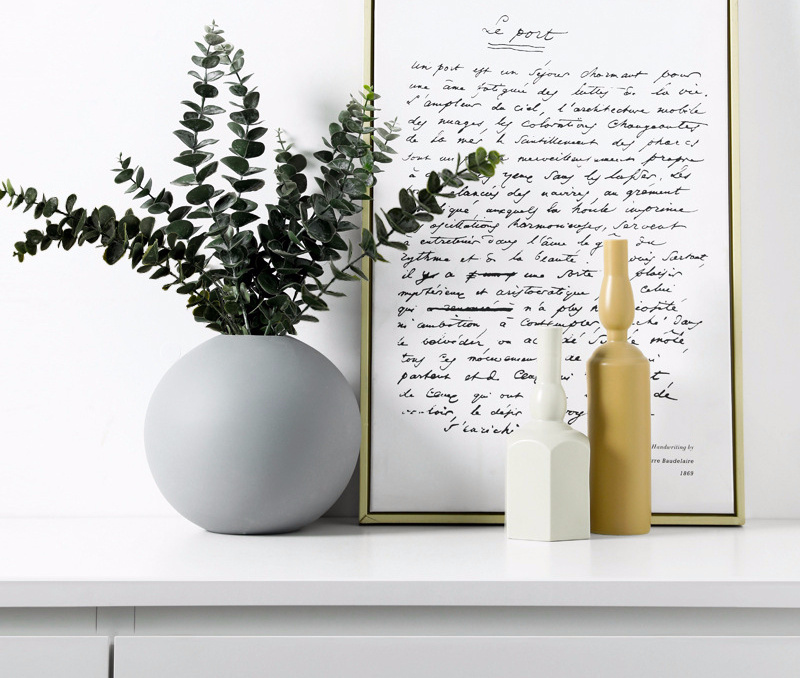 Le port
Un port est un séjour charmant pour
une âme fatiguée des luttes de la vie.
L'ampleur du ciel, l'architecture mobile
des nuages, les colorations changeantes
de la mer, le scintillement des phares
sont un merveilleusement propre
à yeux sans les lasser. Les
élancés des navires, au gréement
auxquels la houle imprime
oscillations harmonieuses, servent
à entretenir dans l'âme le du
rythme et de la beauté. surtout,
il y a une sorte plaisir
mystérieux et aristocratique celui
qui n'a plus curiosité
ni ambition, à contempler, couché dans
le belvédère ou accoudé sur le môle,
tous ces mouvements de qui
partent et de ceux qui
de ceux qui ont de
vouloir, le désir voy
s'enrichir
Handwriting by
rre Baudelaire
1869